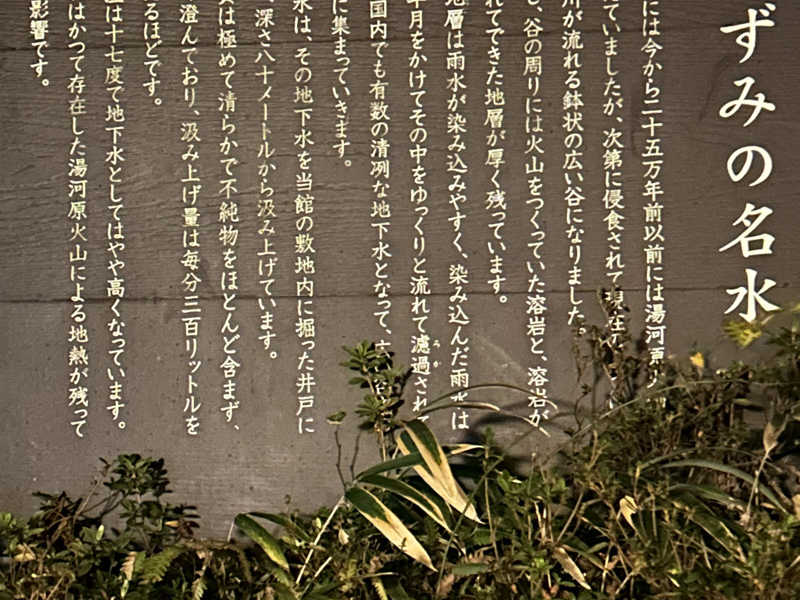 ずみの名水
には今から二十五万年前以前には湯河原
ていましたが、次第に侵食されて現在の
川が流れる鉢状の広い谷になりました。
し、谷の周りには火山をつくっていた溶岩と、溶岩が
れてできた地層が厚く残っています。
地層は雨水が染み込みやすく、染み込んだ雨水は
年月をかけてその中をゆっくりと流れて濾過され
ろか
国内でも有数の清冽な地下水となって、
に集まっていきます。
水は、その地下水を当館の敷地内に掘った井戸に
、深さ八十メートルから汲み上げています。
は極めて清らかで不純物をほとんど含まず、
澄んでおり、汲み上げ量は毎分三百リットルを
るほどです。
は十七度で地下水としてはやや高くなっています。
はかつて存在した湯河原火山による地熱が残って
影響です。